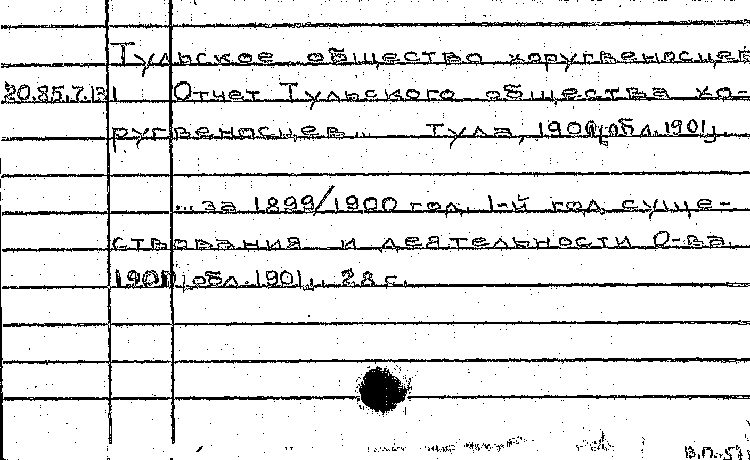 Тульское общество хоругвеносцев
20.85.7.131 Отчет Тульского общества хо-
ругвеносцев... Тула, 1900, обл. 1901,
...за 1899/1900 год. 1-й год суще-
ствования и деятельности О-ва.
1900, обл. 1901,. 28 с.